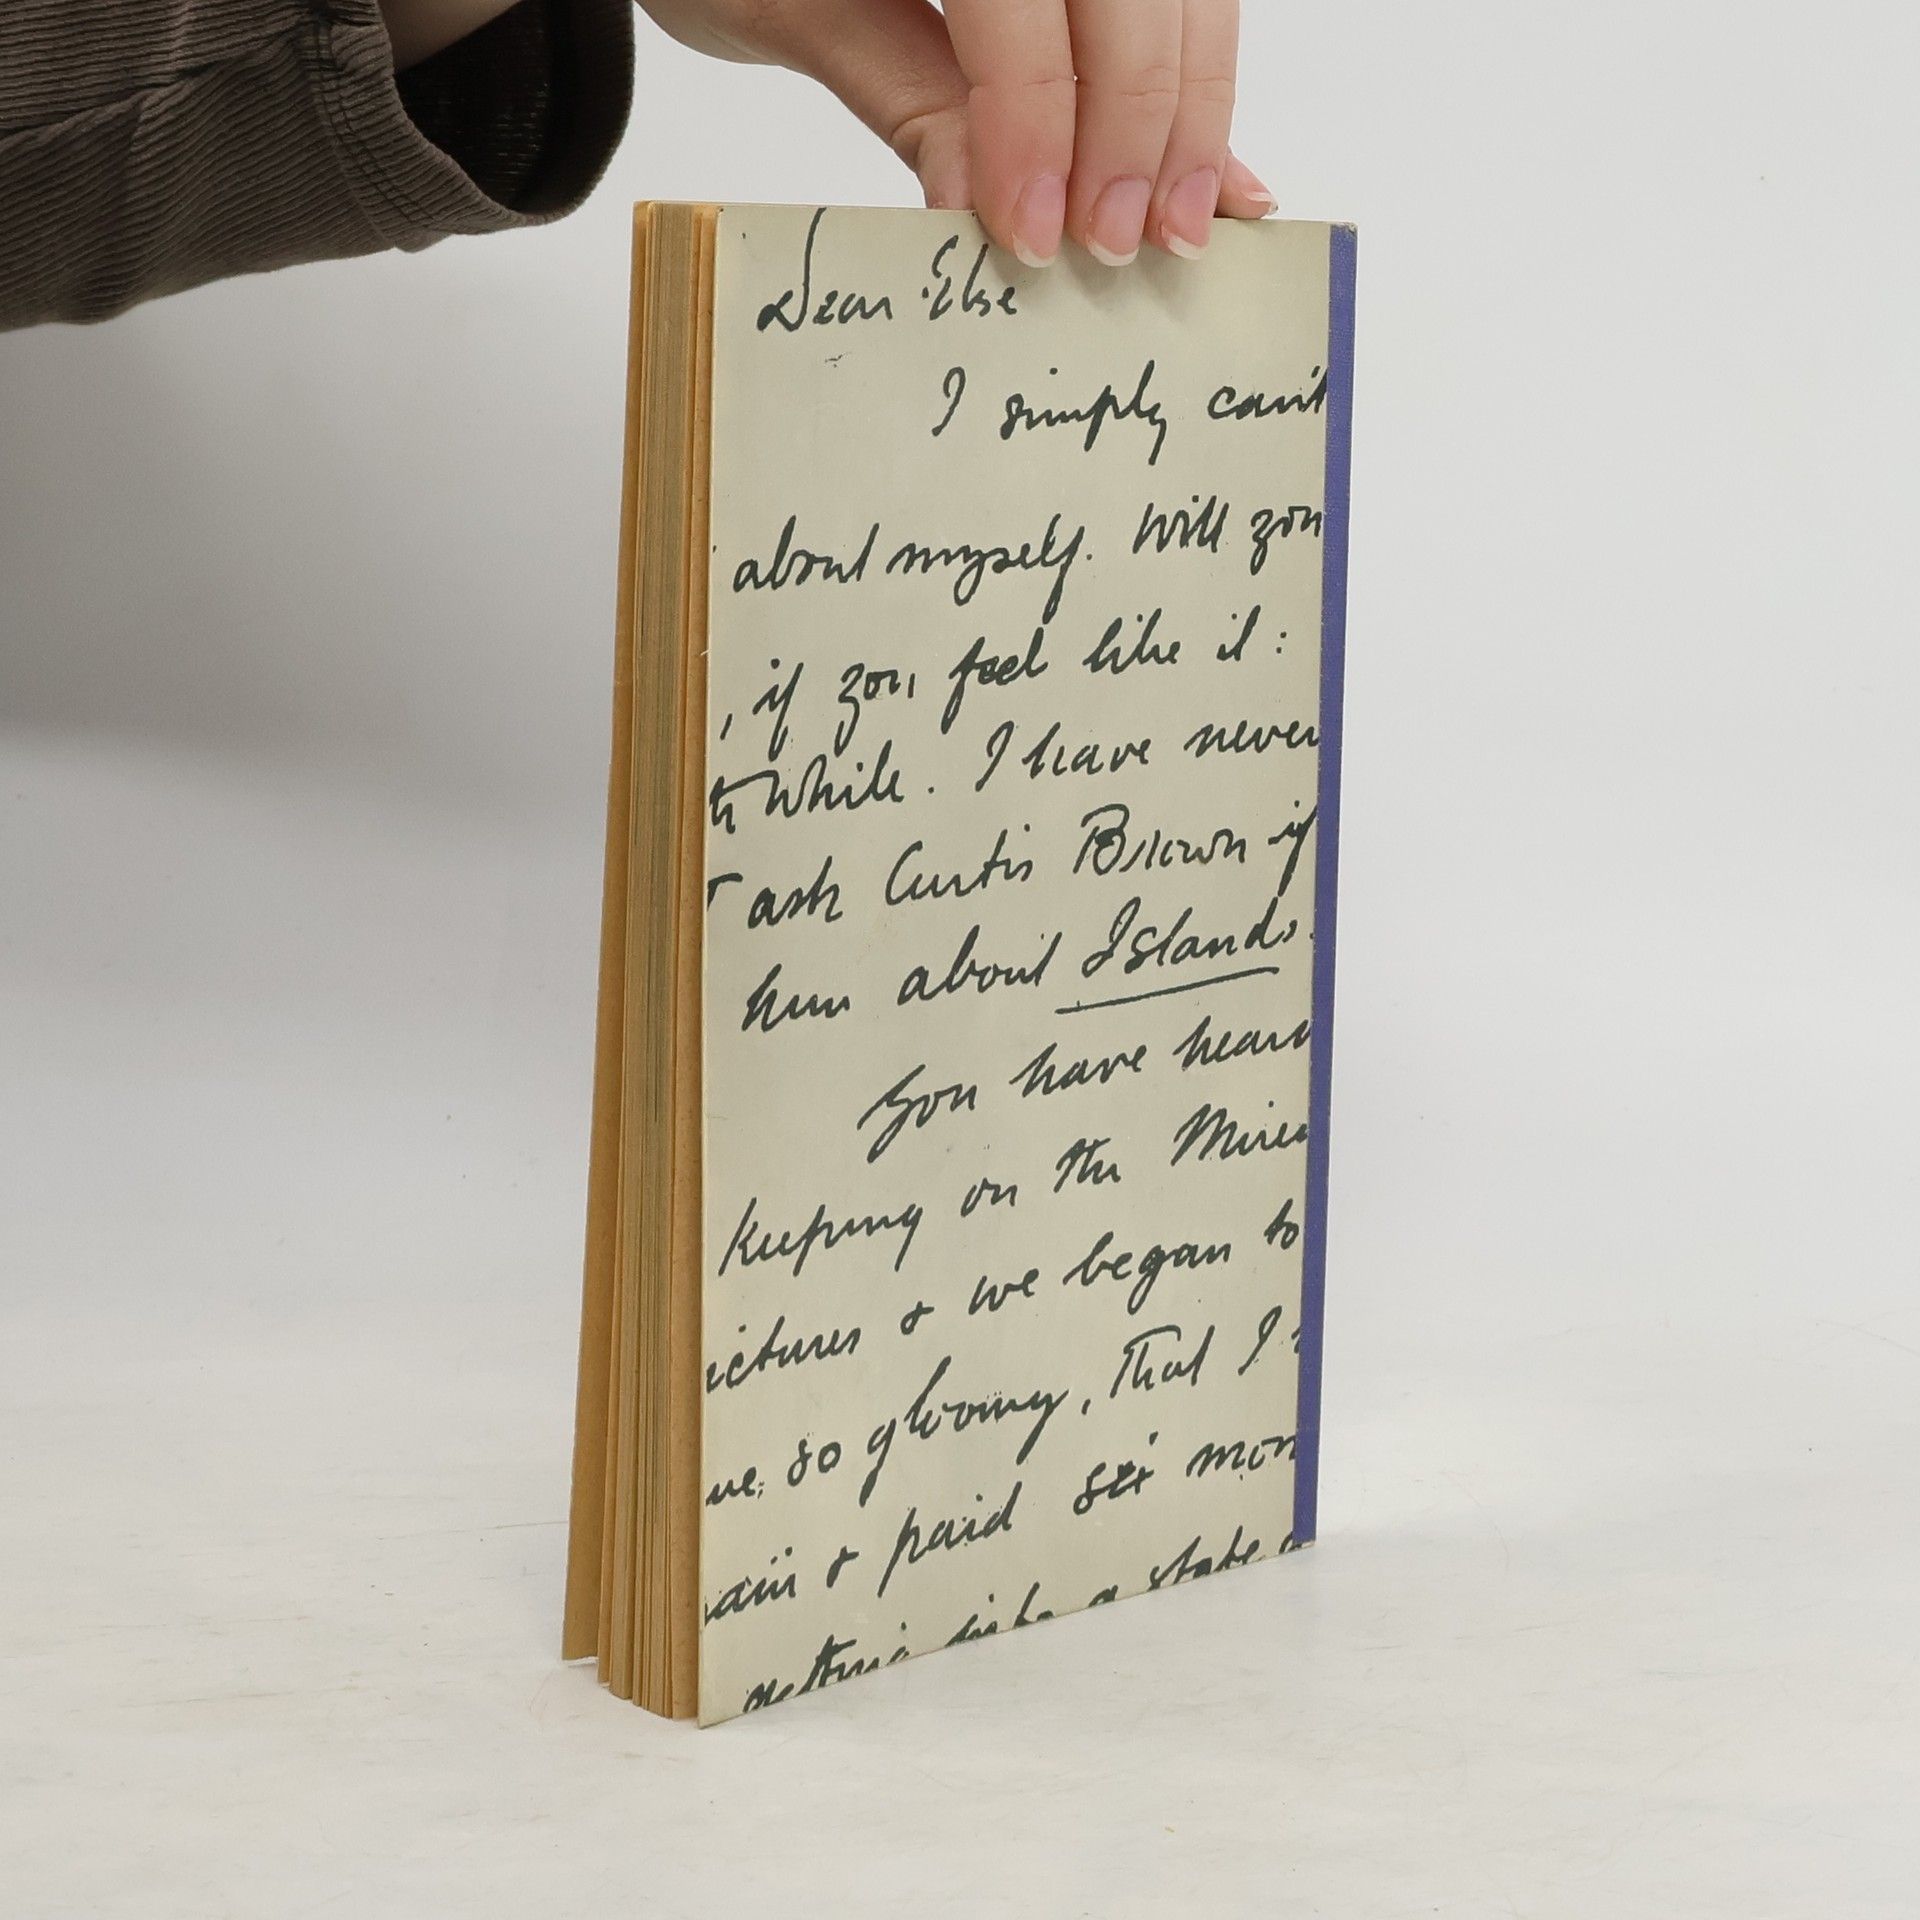 Dear Else
I simply can't
about myself. Will you
, if you feel like it:
th while. I have never
ask Curtis Brown if
him about Islands.
You have heard
keeping on the Mirem
ictures & we began to
ve so gloomy, that I
ain & paid six mon
getting into a state